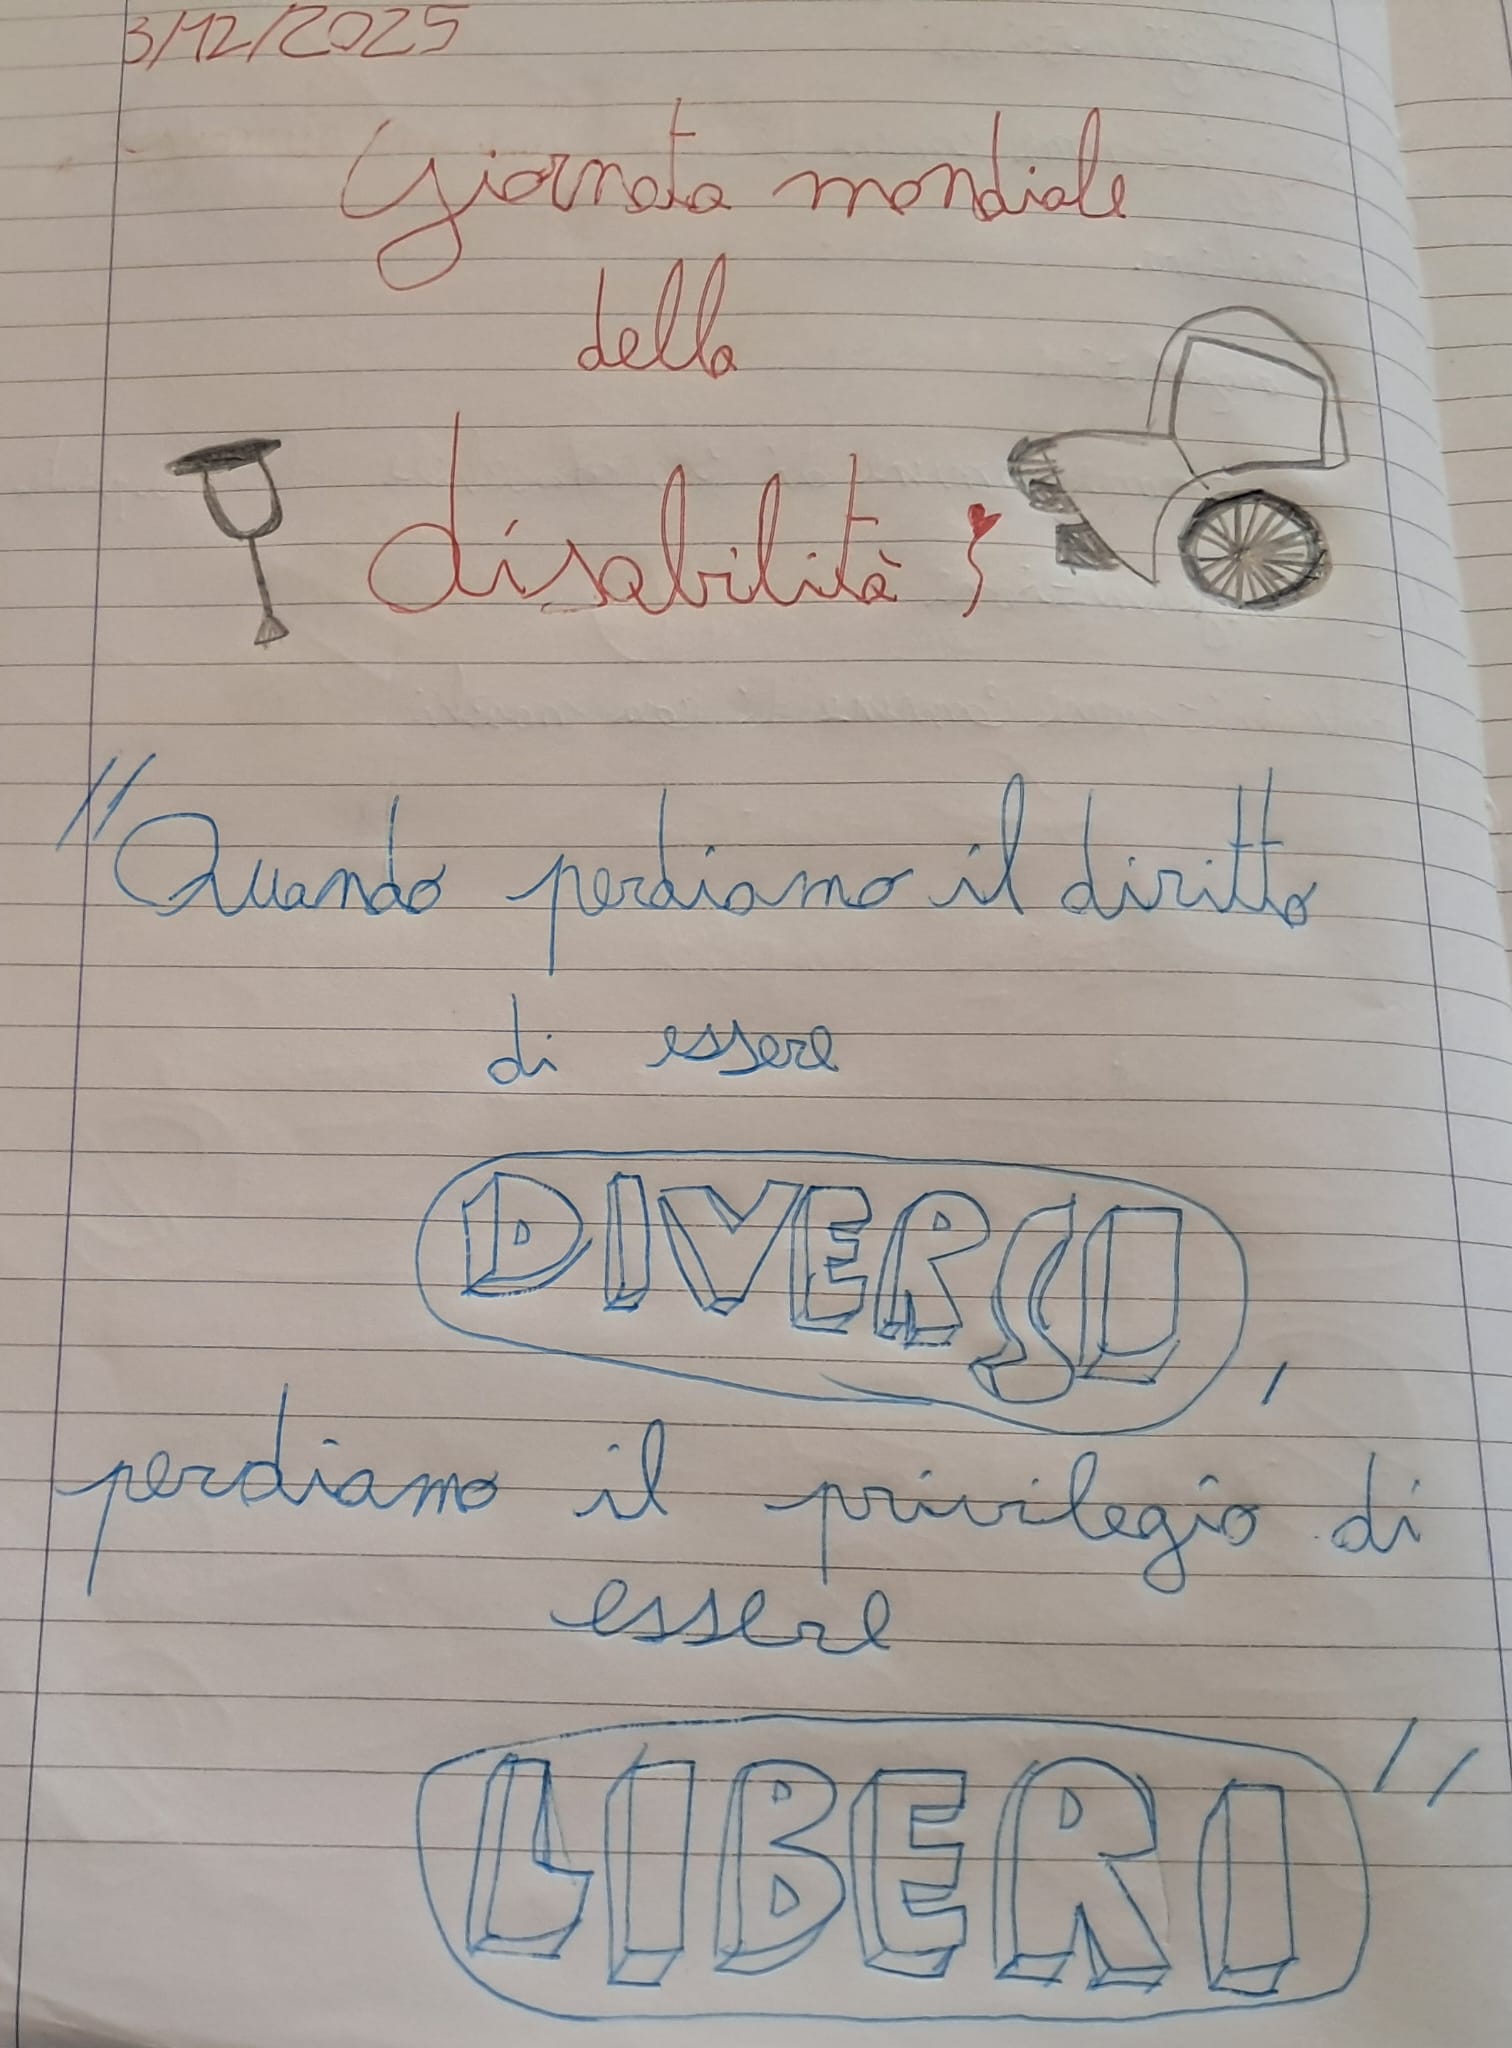 3/12/2025
Giornata mondiale
della
disabilità
"Quando perdiamo il diritto
di essere
DIVERSI,
perdiamo il privilegio di
essere
LIBERI"